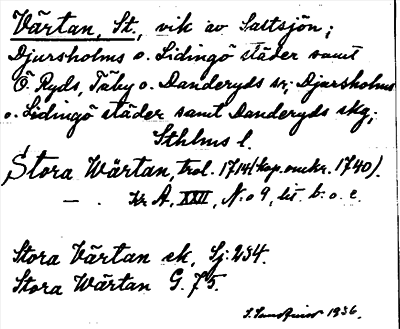 Värtan, St., vik av Saltsjön;
Djursholms o. Lidingö städer samt
Ö. Ryds, Täby o. Danderyds sn; Djursholms
o. Lidingö städer samt Danderyds skg;
Sthlms l.
Stora Wärtan, trol. 1714 (kop. omkr. 1740).
— . Kr A, XXII, N:o 9, lit. b. o. c.
Stora Värtan ek, Sj. 254.
Stora Wärtan G. 75.
1936.